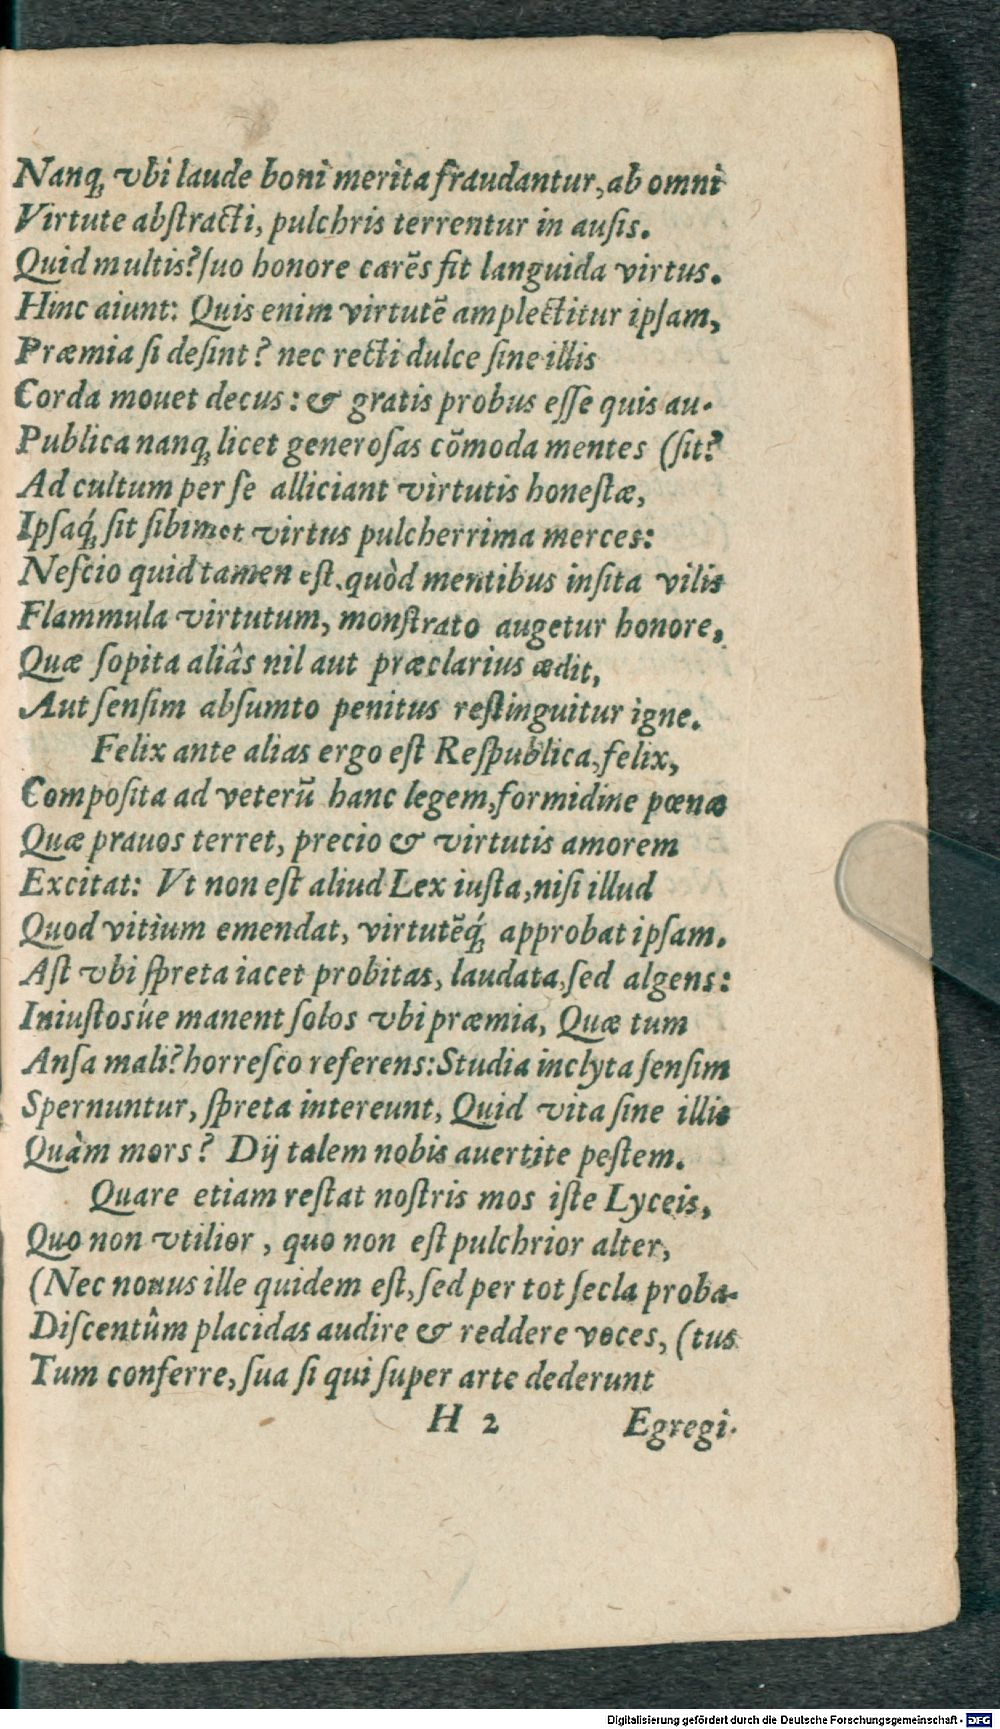 Nanq́; vbi laude boni merita fraudantur, ab omni
Virtute abſtracti, pulchris terrentur in auſis.
Quid multis? ſuo honore carẽs fit languida virtus.
Hinc aiunt: Quis enim virtutẽ amplectitur ipſam,
Præmia ſi deſint? nec recti dulce ſine illis
Corda mouet decus: & gratis probus eſſe quis au-
Publica nanq; licet generoſas cõmoda mentes (ſit?
Ad cultum per ſe alliciant virtutis honeſtæ,
Ipſaq́; ſit ſibimet virtus pulcherrima merces:
Neſcio quid tamen eſt, quòd mentibus inſita vilis
Flammula virtutum, monſtrato augetur honore,
Quæ ſopita aliâs nil aut præclarius ædit,
Aut ſenſim abſumto penitus reſtinguitur igne.
Felix ante alias ergo eſt Reſpublica, felix,
Compoſita ad veterũ hanc legem, formidine pœnæ
Quæ prauos terret, precio & virtutis amorem
Excitat: Vt non eſt aliud Lex iuſta, niſi illud
Quod vitium emendat, virtutẽq́; approbat ipſam.
Aſt vbi ſpreta iacet probitas, laudata, ſed algens:
Iniuſtosúe manent ſolos vbi præmia, Quæ tum
Anſa mali? horreſco referens: Studia inclyta ſenſim
Spernuntur, ſpreta intereunt, Quid vita ſine illis
Quàm mors? Dij talem nobis auertite peſtem.
Quare etiam reſtat noſtris mos iſte Lyceis,
Quo non vtilior, quo non eſt pulchrior alter,
(Nec nouus ille quidem eſt, ſed per tot ſecla proba-
Diſcentûm placidas audire & reddere voces, (tus
Tum conferre, ſua ſi qui ſuper arte dederunt
H 2 Egregi-
Digitalisierung gefördert durch die Deutsche Forschungsgemeinschaft - DFG